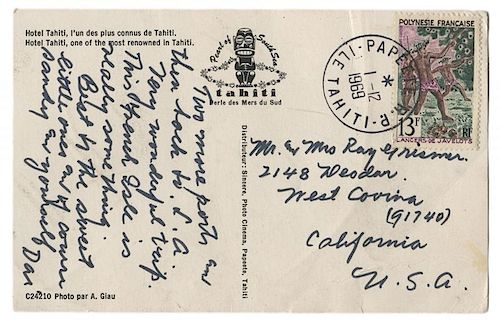 Hotel Tahiti, l'un des plus connus de Tahiti.
Hotel Tahiti, one of the most renowned in Tahiti.
Two more ports and
then back to L.A.
Very wonderful trip.
This French Isle is
really something.
But to the sweet
little ones
Dan
C24210 Photo par A. Giau
Pearl of South Seas
tahiti
Perle des Mers du Sud
Distributeur: Sincere, Photo Cinema, Papeete, Tahiti
ILE TAHITI
1-12
1969
POLYNESIE FRANÇAISE
13F
RF
LANCERS DE JAVELOTS
Mr. & Mrs Ray Griswer
2148 Deodar
West Covina
(91740)
California
U.S.A.